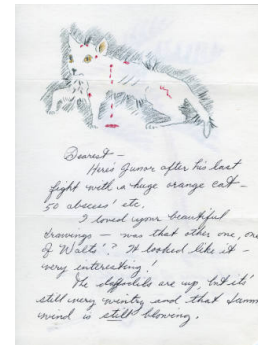 Dearest –
Here's Junor after his last
fight with a huge orange cat –
50 abscess' etc.
I loved your beautiful
drawings – was that other one, one
of Walts'? It looked like it –
very interesting!
The daffodils are up, but it's
still very wintry and that damn
wind is still blowing.